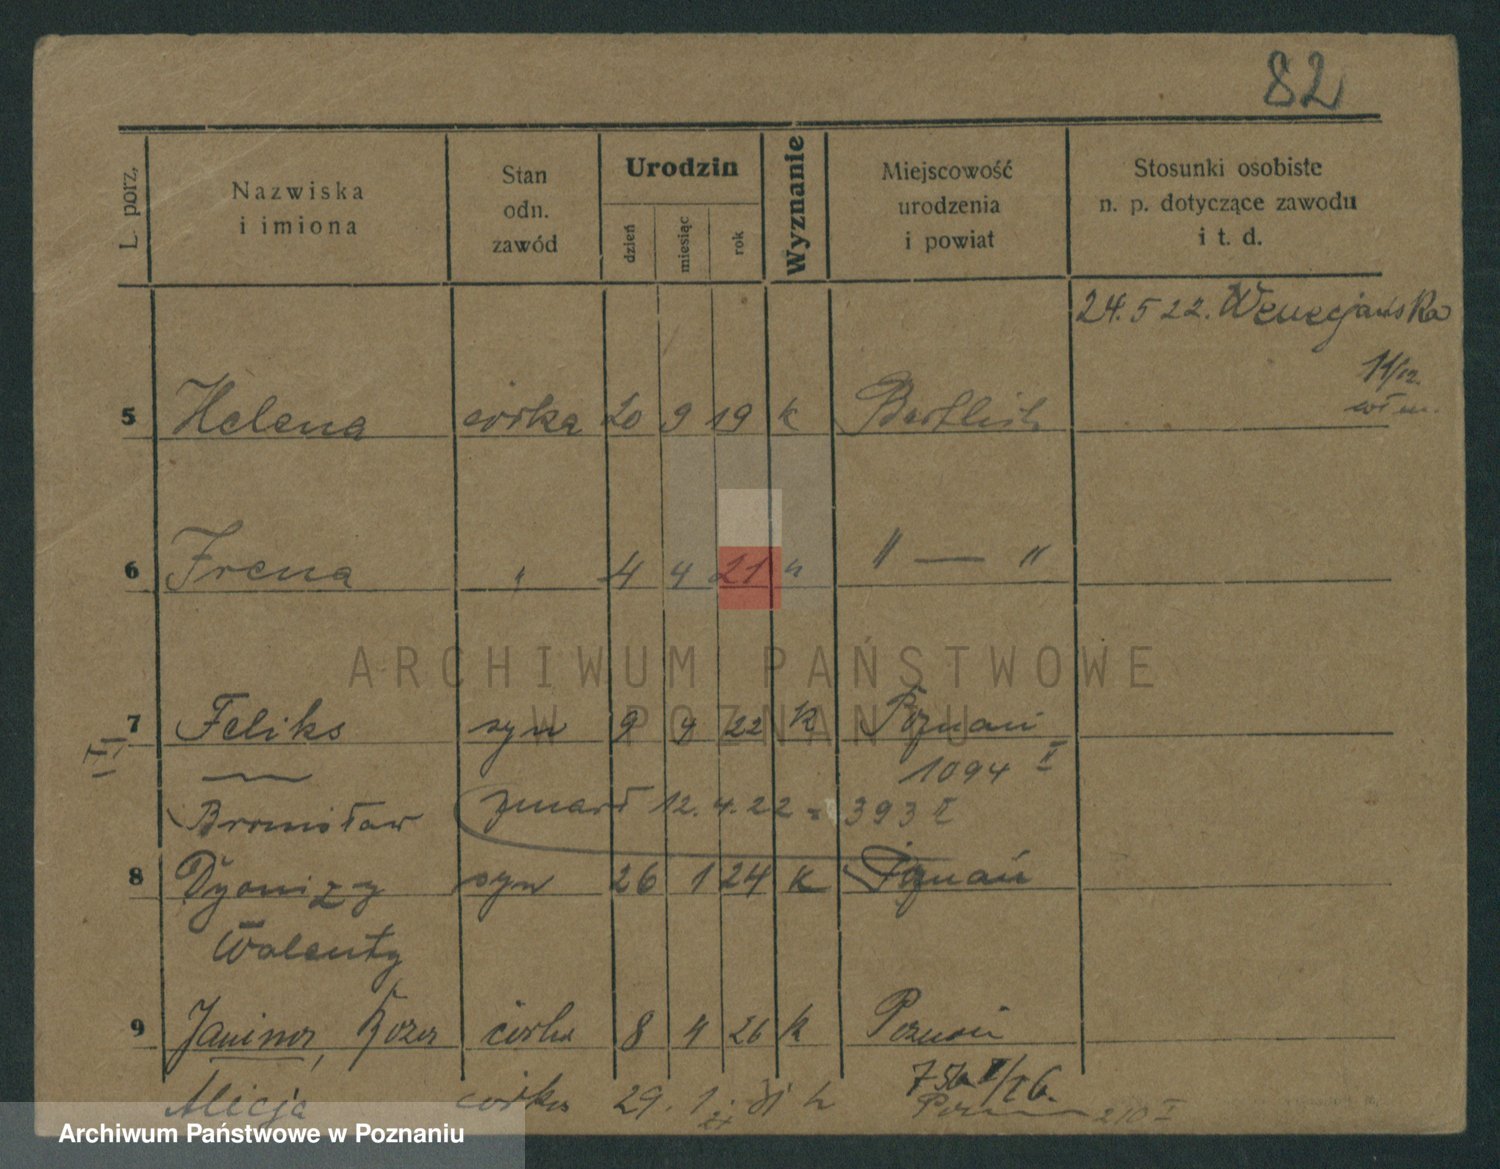 82
L. porz.
Nazwiska
i imiona
Stan
odn.
zawód
Urodzin
dzień
miesiąc
rok
Wyznanie
Miejscowość
urodzenia
i powiat
Stosunki osobiste
n. p. dotyczące zawodu
i t. d.
24. 5 22. Wenecjańska
11/12.
5 Helena córka 20 9 19 k
6 Irena " 4 4 21 " " — "
7 Feliks syn 9 4 22 k Poznań
1094 I
Bronisław zmarł 12. 4. 22 = 393 I
8 Dyonizy syn 26 1 24 k Poznań
Walenty
9 Janina, Róża córka 8 4 26 k Poznań
Alicja córka 29. 1. 210 I
ARCHIWUM PAŃSTWOWE
W POZNANIU
Archiwum Państwowe w Poznaniu